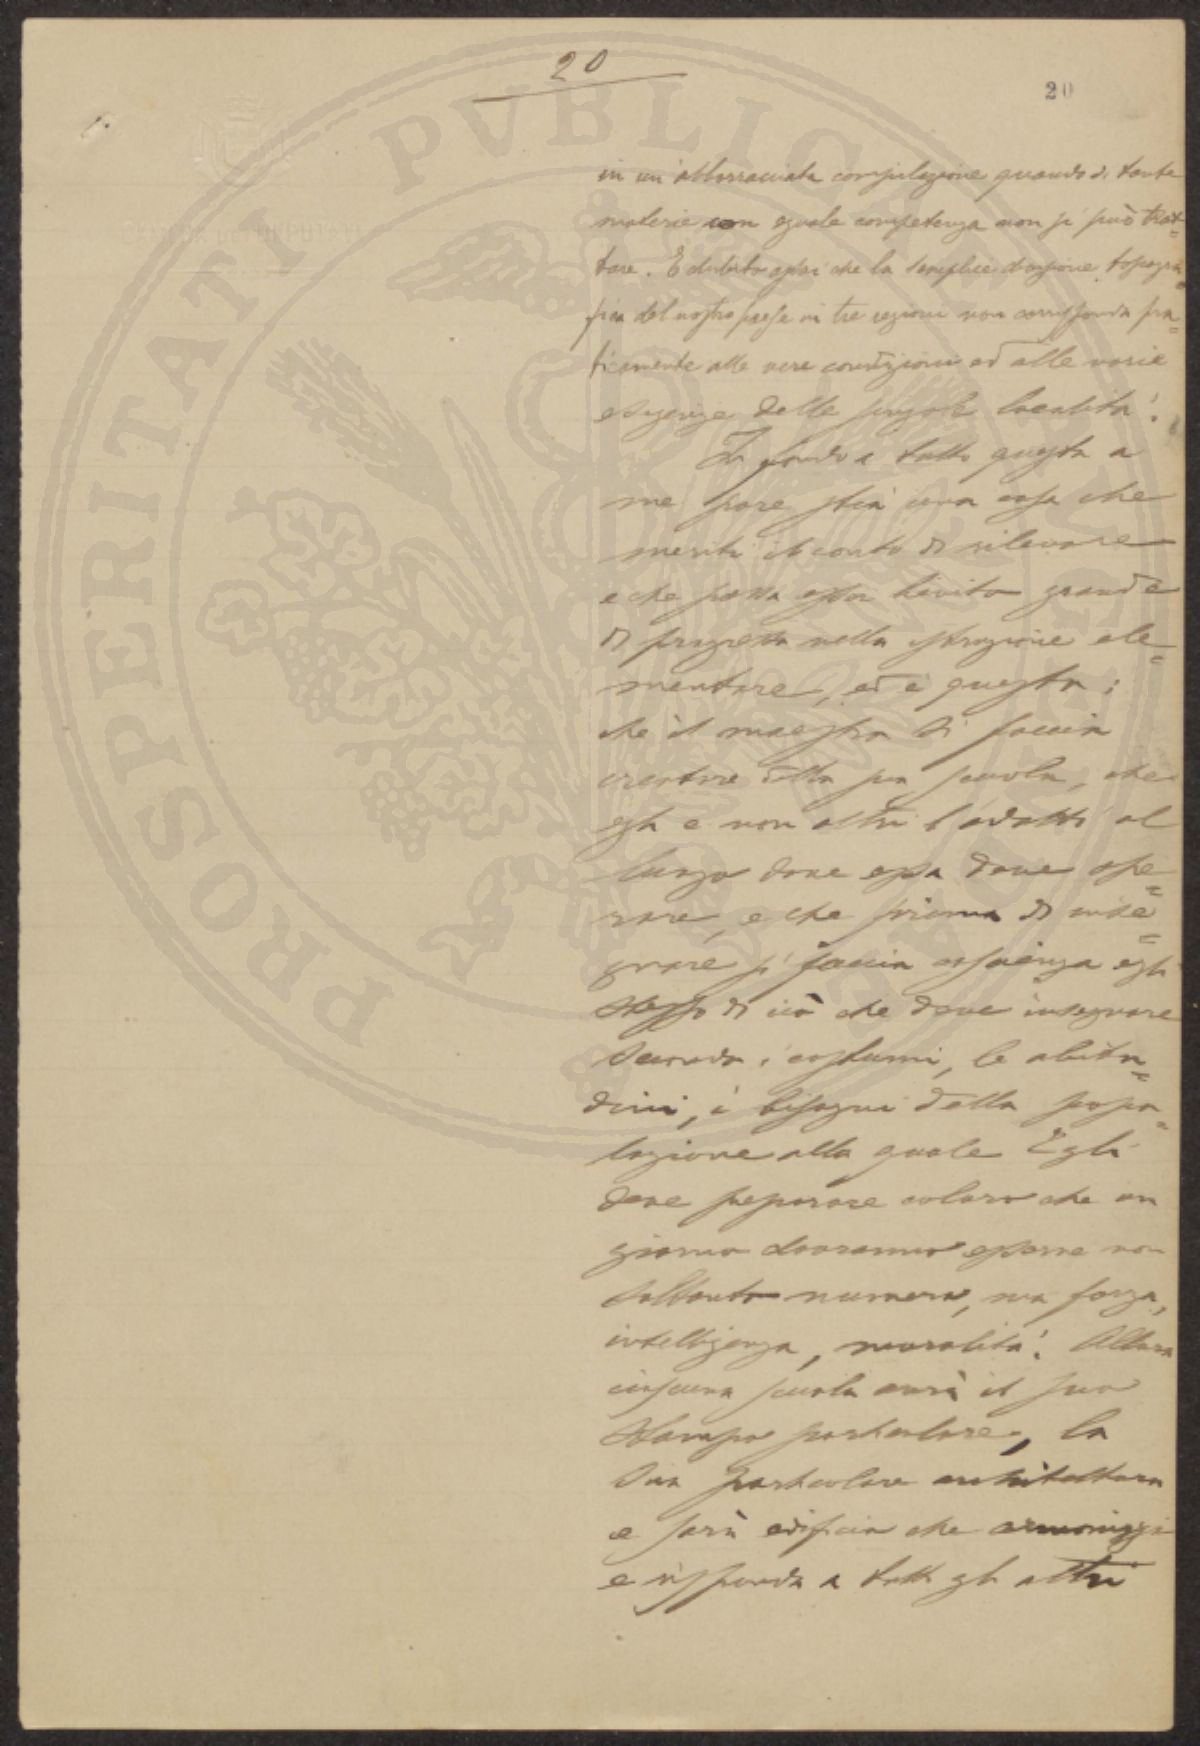 20
20
in un'abborracciata compilazione quando di tante
materie con eguale competenza non si può trat=
tare. E dubito assai che la semplice divisione topogra=
fica del nostro paese in tre regioni non corrisponda pra=
ticamente alle vere condizioni ed alle varie
esigenze delle singole località.
In fondo a tutto questo a
me pare stia una cosa che
meriti il conto di rilevare
e che possa esser lievito grande
di progresso nella istruzione ele=
mentare, ed è questa:
che il maestro si faccia
creatore della sua scuola, che
egli e non altri l'adatti al
luogo dove essa deve ope=
rare, e che prima di inse=
gnare si faccia coscienza egli
stesso di ciò che deve insegnare
secondo i costumi, le abitu=
dini, i bisogni della popo=
lazione alla quale Egli
deve preparare coloro che un
giorno dovranno essere non
soltanto numero, ma forza,
intelligenza, moralità. Allora
ciascuna scuola avrà il suo
stampo particolare, la
sua particolare architettura
e sarà edificio che armonizzi
e risponda a tutti gli altri
PROSPERITATI PVBLICAE